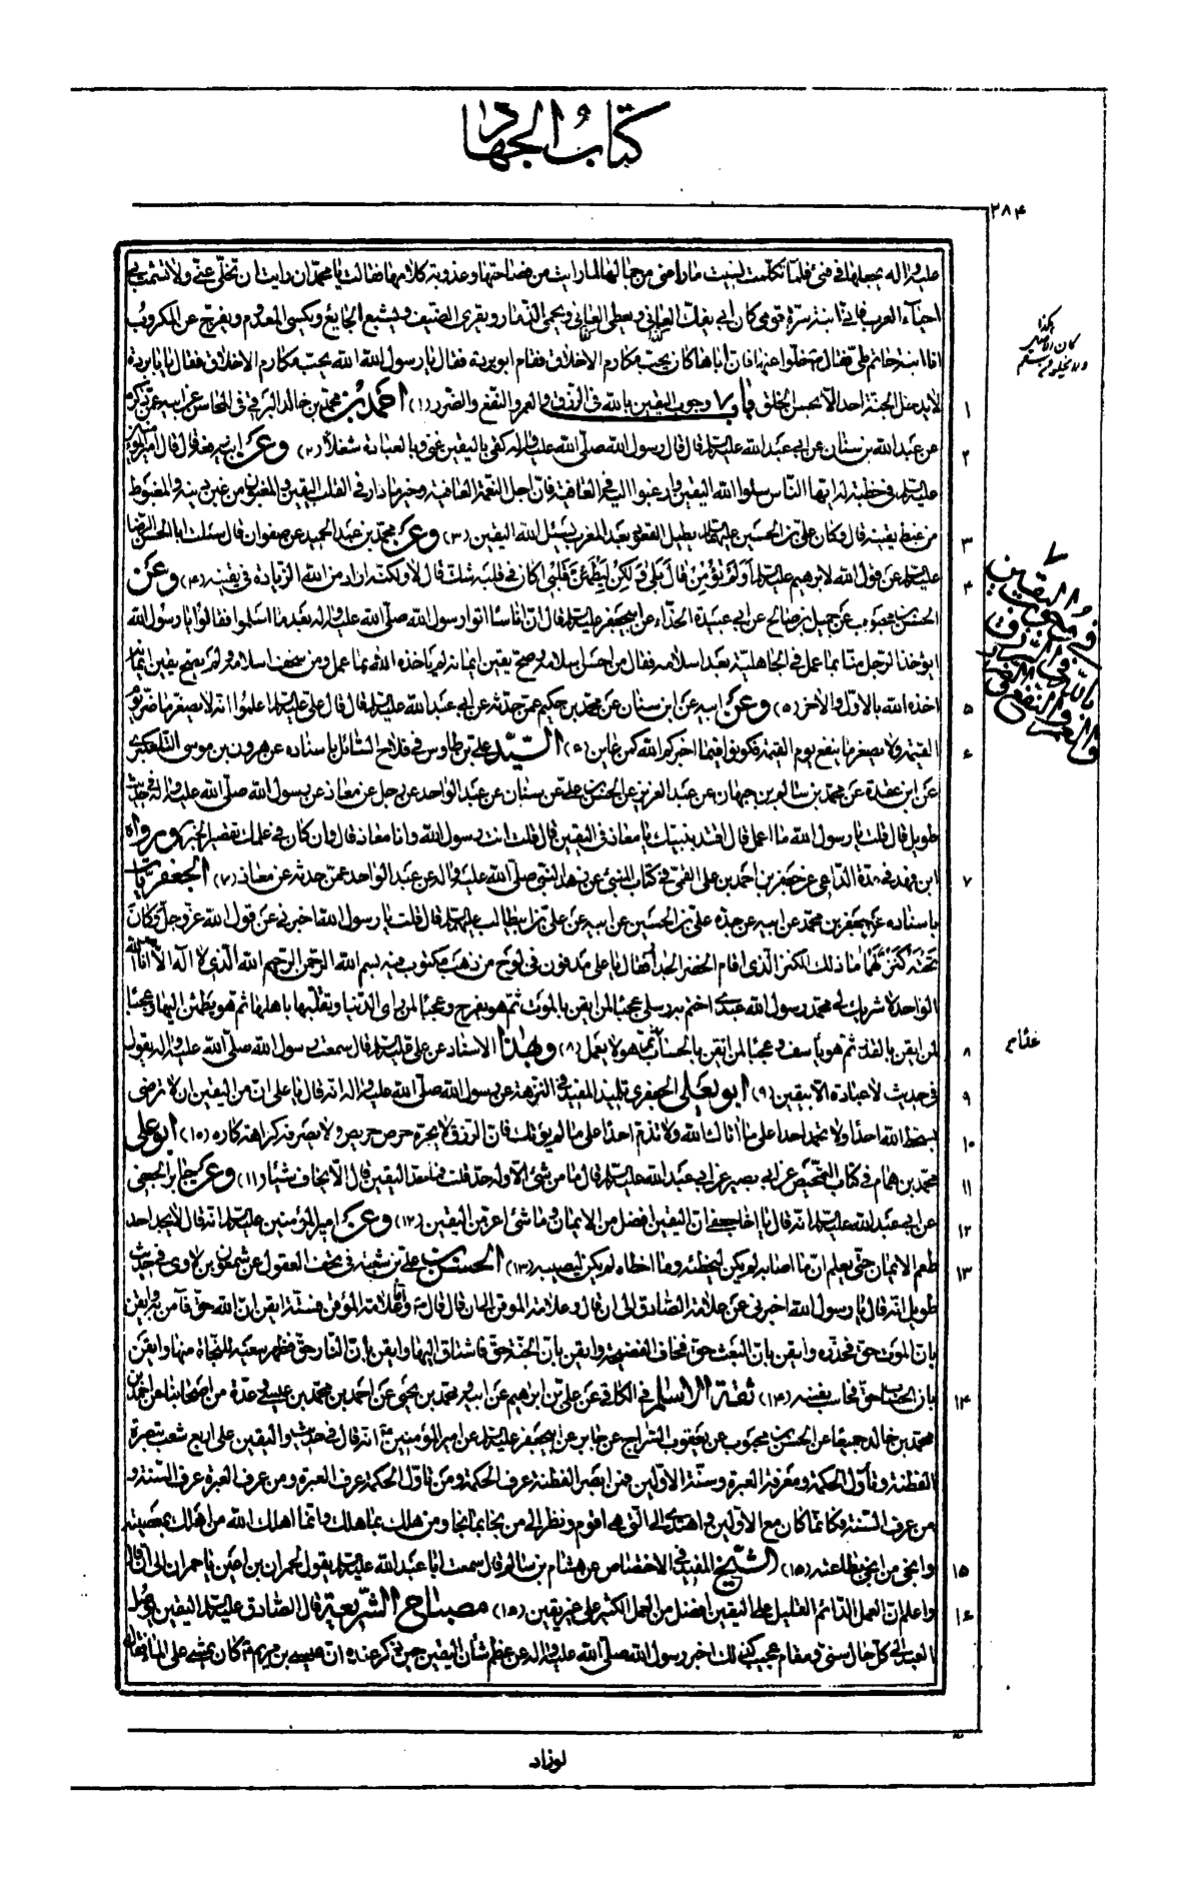 كتاب الجهاد
٢٨۴
عليه واله يجعلها في فيئي فلما تكلمت نسيت ما راعني من جمالها لما رايت من فصاحتها وعذوبة كلامها فقالت يا محمد ان رايت ان تخلي عني ولا تشمت بي
احياء العرب فاني ابنة سرة قومي كان ابي يفك العاني ويحمي الذمار ويقري الضيف ويشبع الجايع ويكسي المعدوم ويفرج عن المكروب
انا ابنة حاتم طي فقال خلوا عنها فان اباها كان يحب مكارم الاخلاق فقام ابو بردة فقال يا رسول الله الله يحب مكارم الاخلاق فقال يا ابا بردة
لا يدخل الجنة احد الا بحسن الخلق باب ٧ وجوب اليقين بالله في الرزق والعمر والنفع والضر (١) احمد بن محمد بن خالد البرقي في المحاسن عن ابيه عمن ذكره
عن عبد الله بن سنان عن ابي عبد الله عليه السلام قال قال رسول الله صلى الله عليه واله كفى باليقين غنى وبالعبادة شغلا (٢) وعن ابيه رفعه قال قال امير المؤمنين
عليه السلام في خطبة له ايها الناس سلوا الله اليقين وارغبوا اليه في العافية فان اجل النعمة العافية وخير ما دار في القلب اليقين والمغبون من غبن دينه والمغبوط
من غبط يقينه قال وكان علي بن الحسين عليه السلام يطيل القعود بعد المغرب يسئل الله اليقين (٣) وعن محمد بن عبد الحميد عن صفوان قال سئلت ابا الحسن الرضا
عليه السلام عن قول الله لابرهيم عليه السلام اولم تؤمن قال بلى ولكن ليطمئن قلبي اكان في قلبه شك قال لا ولكنه اراد من الله الزيادة في يقينه (۴) وعن
الحسن بن محبوب عن جميل بن صالح عن ابي عبيدة الحذاء عن ابي جعفر عليه السلام قال ان ناسا اتوا رسول الله صلى الله عليه واله بعد ما اسلموا فقالوا يا رسول الله
ايؤخذ الرجل منا بما عمل في الجاهلية بعد اسلامه فقال من احسن اسلامه وصح يقين ايمانه لم ياخذه الله بما عمل ومن سخف اسلامه ولم يصح يقين ايمانه
اخذه الله بالاول والاخر (۵) وعن ابيه عن ابن سنان عن محمد بن حكيم عمن حدثه عن ابي عبد الله عليه السلام قال قال علي عليه السلام اعلموا انه لا يصغر ما ضر يوم
القيمة ولا يصغر ما ينفع يوم القيمة فكونوا فيما اخبركم الله كمن عاين (۶) السيد علي بن طاوس في فلاح السائل باسناده عن هرون بن موسى التلعكبري
عن ابن عقدة عن محمد بن سالم بن جبهان عن عبد العزيز عن الحسن بن علي عن سنان عن عبد الواحد عن رجل عن معاذ عن رسول الله صلى الله عليه واله في حديث
طويل قال قلت يا رسول الله ما اعمل قال اقتد بنبيك يا معاذ في اليقين قال قلت انت رسول الله وانا معاذ قال وان كان في عملك تقصير الخبر ورواه
ابن فهد في عدة الداعي عن جعفر بن احمد بن علي القمي في كتاب المنبئ عن زهد النبي صلى الله عليه واله عن عبد الواحد عمن حدثه عن معاذ (٧) الجعفريات
باسناده عن جعفر بن محمد عن ابيه عن جده علي بن الحسين عن ابيه عن علي بن ابيطالب عليه السلام قال قلت يا رسول الله اخبرني عن قول الله عز وجل وكان
تحته كنز لهما ما ذلك الكنز الذي اقام الخضر الجدار فقال يا علي مدفون في لوح من ذهب مكتوب فيه بسم الله الرحمن الرحيم الله الذي لا اله الا انا الله
الواحد لا شريك لي محمد رسول الله عبدي اختم به رسلي عجبا لمن ايقن بالموت ثم هو يفرح وعجبا لمن راى الدنيا وتقلبها باهلها ثم هو يطمئن اليها وعجبا
لمن ايقن بالقدر ثم هو ياسف وعجبا لمن ايقن بالحساب ثم هو لا يعمل (٨) وبهذا الاسناد عن علي عليه السلام قال سمعت رسول الله صلى الله عليه واله يقول
في حديث لا عبادة الا بيقين (٩) ابو يعلى الجعفري تلميذ المفيد في النزهة عن رسول الله صلى الله عليه واله انه قال يا علي ان من اليقين ان لا ترضي
بسخط الله احدا ولا تحمد احدا على ما اتاك الله ولا تذم احدا على ما لم يؤتك فان الرزق لا يجره حرص حريص ولا يصرفه كراهة كاره (١٠) ابو علي
محمد بن همام في كتاب التمحيص عن ابي بصير عن ابي عبد الله عليه السلام قال ما من شئ الا وله حد قلت فما حد اليقين قال الا تخاف شيئا (١١) وعن جابر الجعفي
عن ابي عبد الله عليه السلام انه قال يا اخا جعفي ان اليقين افضل من الايمان وما شئ اعز من اليقين (١٢) وعن امير المؤمنين عليه السلام انه قال لا يجد احد
طعم الايمان حتى يعلم ان ما اصابه لم يكن ليخطئه وما اخطاه لم يكن ليصيبه (١٣) الحسن بن علي بن شعبة في تحف العقول عن شمعون بن لاوي في حديث
طويل انه قال يا رسول الله اخبرني عن علامة الصادق الى ان قال وعلامة الموقن الى ان قال قال واما علامة المؤقن فستة ايقن ان الله حق فآمن به وايقن
بان الموت حق فحذره وايقن بان البعث حق فخاف الفضيحة وايقن بان الجنة حق فاشتاق اليها وايقن بان النار حق فظهر سعيه للنجاة منها وايقن
بان الحساب حق فحاسب نفسه (١۴) ثقة الاسلام في الكافي عن علي بن ابرهيم عن ابيه ومحمد بن يحيى عن احمد بن محمد بن عيسى وعدة من اصحابنا عن احمد بن
محمد بن خالد جميعا عن الحسن بن محبوب عن يعقوب السراج عن جابر عن ابيجعفر عليه السلام عن امير المؤمنين ع انه قال في حديث واليقين على اربع شعب تبصرة
الفطنة وتاول الحكمة ومعرفة العبرة وسنة الاولين فمن ابصر الفطنة عرف الحكمة ومن تاول الحكمة عرف العبرة ومن عرف العبرة عرف السنة و
من عرف السنة فكانما كان مع الاولين واهتدى الى التي هي اقوم ونظر الى من نجا بما نجا ومن هلك بما هلك وانما اهلك الله من اهلك بمعصيته
وانجى من انجى بطاعته (١۵) الشيخ المفيد في الاختصاص عن هشام بن سالم قال سمعت ابا عبد الله عليه السلام يقول لحمران بن اعين يا حمران الى ان قال
واعلم ان العمل الدائم القليل على اليقين افضل من العمل الكثير على غير يقين (١۶) مصباح الشريعة قال الصادق عليه السلام اليقين يوصل
العبد الى كل حال سني ومقام عجيب كذلك اخبر رسول الله صلى الله عليه واله عن عظم شان اليقين حين ذكر عنده ان عيسى بن مريم ع كان يمشي على الماء فقال
لو زاد
هكذا
كان الاصل
٧
في وجوب اليقين
بالله في الرزق
والعمر والنفع والضر
١
٢
٣
۴
۵
۶
٧
٨
٩
١٠
١١
١٢
١٣
١۴
١۵
١۶